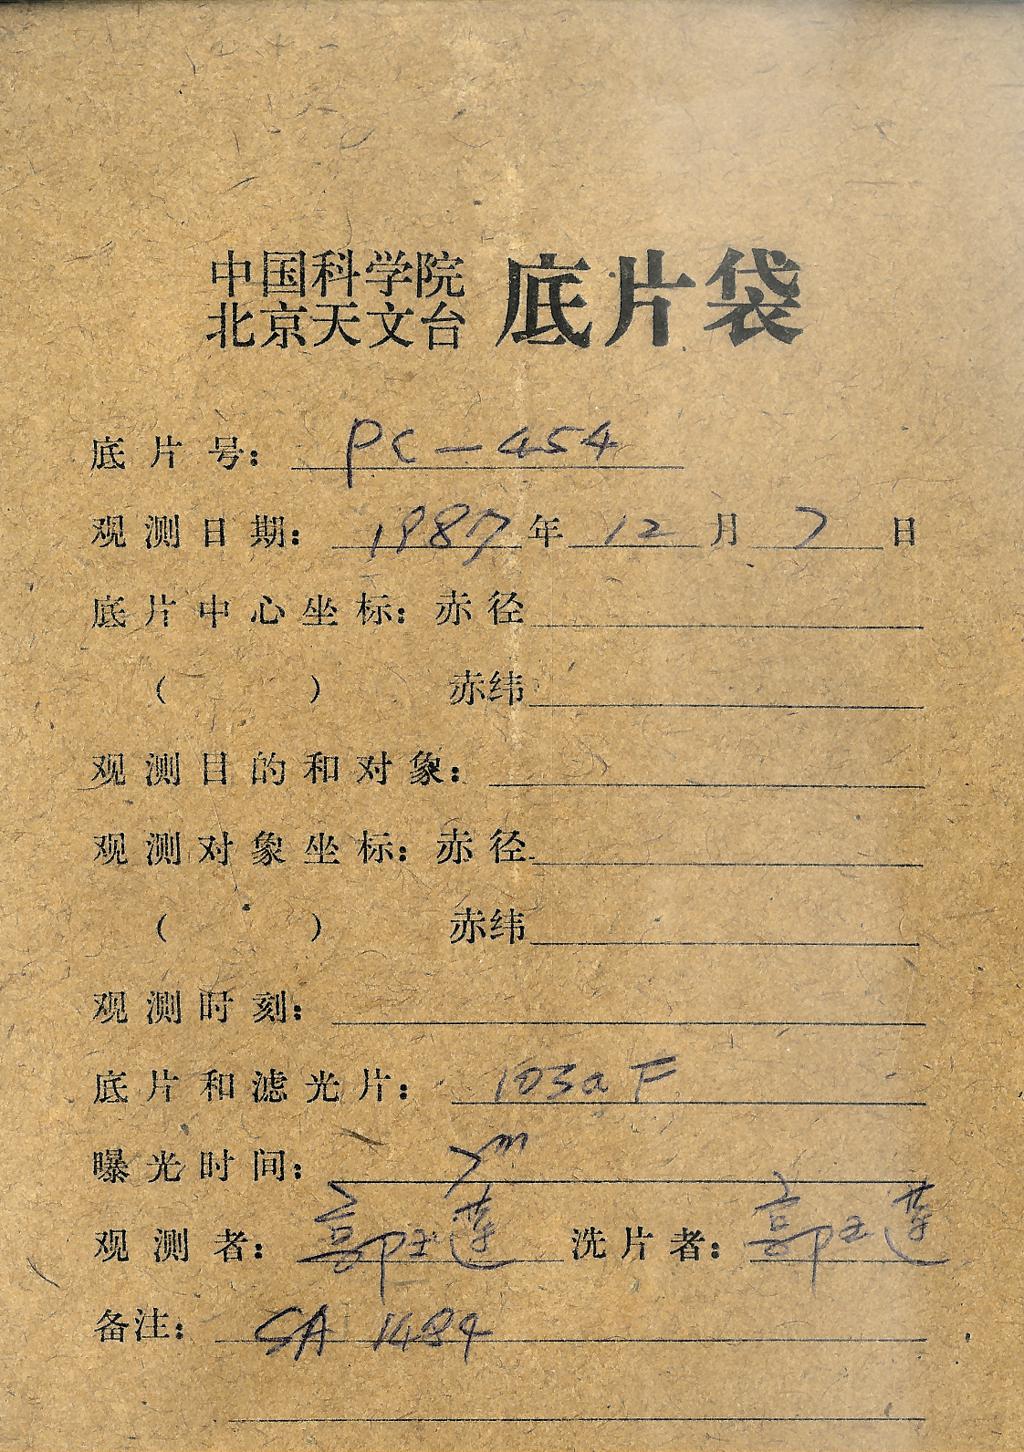 中国科学院
北京天文台 底片袋
底片号: PC-454
观测日期: 1987年12月7日
底片中心坐标: 赤径
( ) 赤纬
观测目的和对象:
观测对象坐标: 赤径
( ) 赤纬
观测时刻:
底片和滤光片: 103aF
曝光时间: 7m
观测者: 郭玉莲 洗片者: 郭玉莲
备注: SA 1484